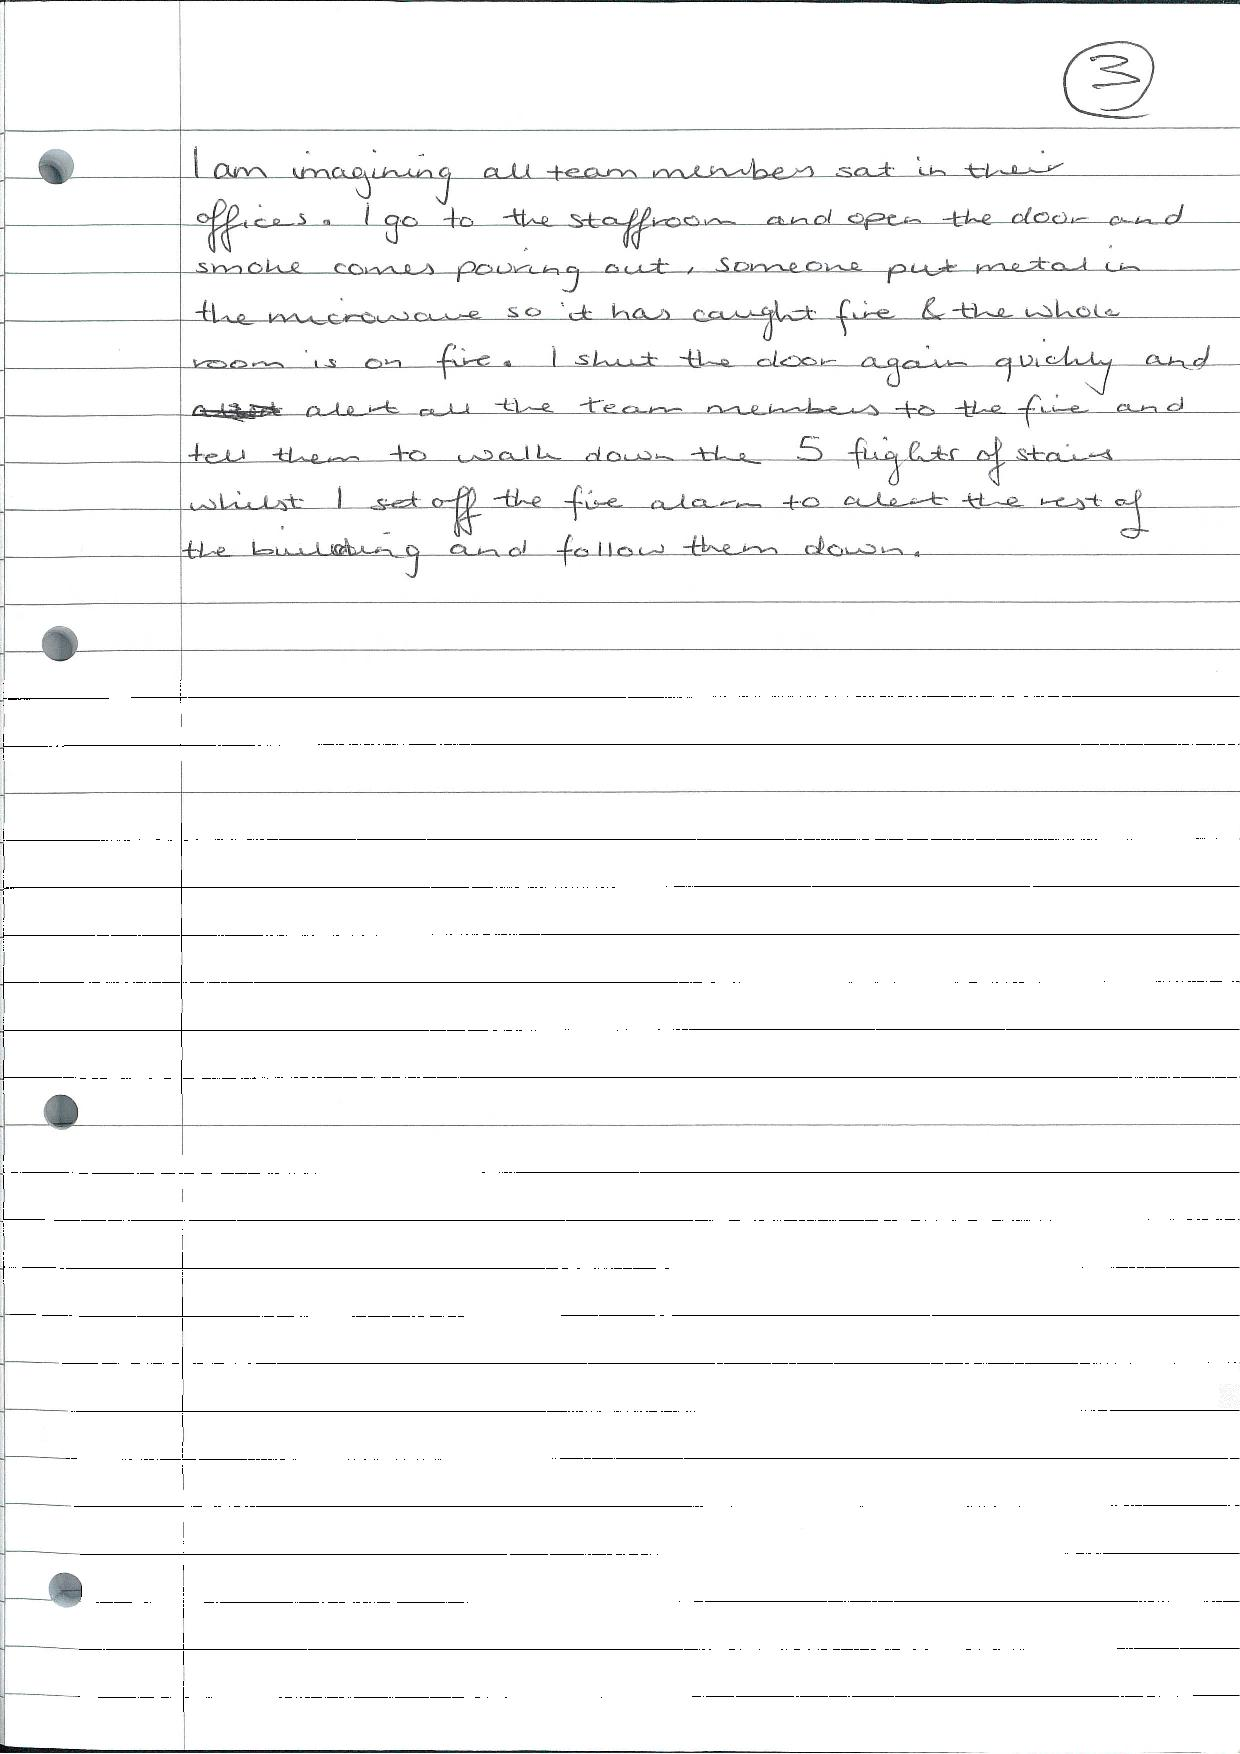 3
I am imagining all team members sat in their
offices. I go to the staffroom and open the door and
smoke comes pouring out, someone put metal in
the microwave so it has caught fire & the whole
room is on fire. I shut the door again quickly and
alert all the team members to the fire and
tell them to walk down the 5 flights of stairs
whilst I set off the fire alarm to alert the rest of
the building and follow them down.